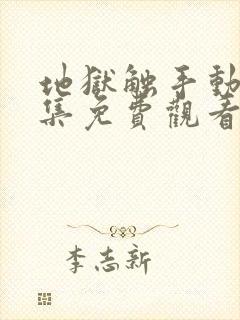 地獄触手動
集免費觀看
李志新